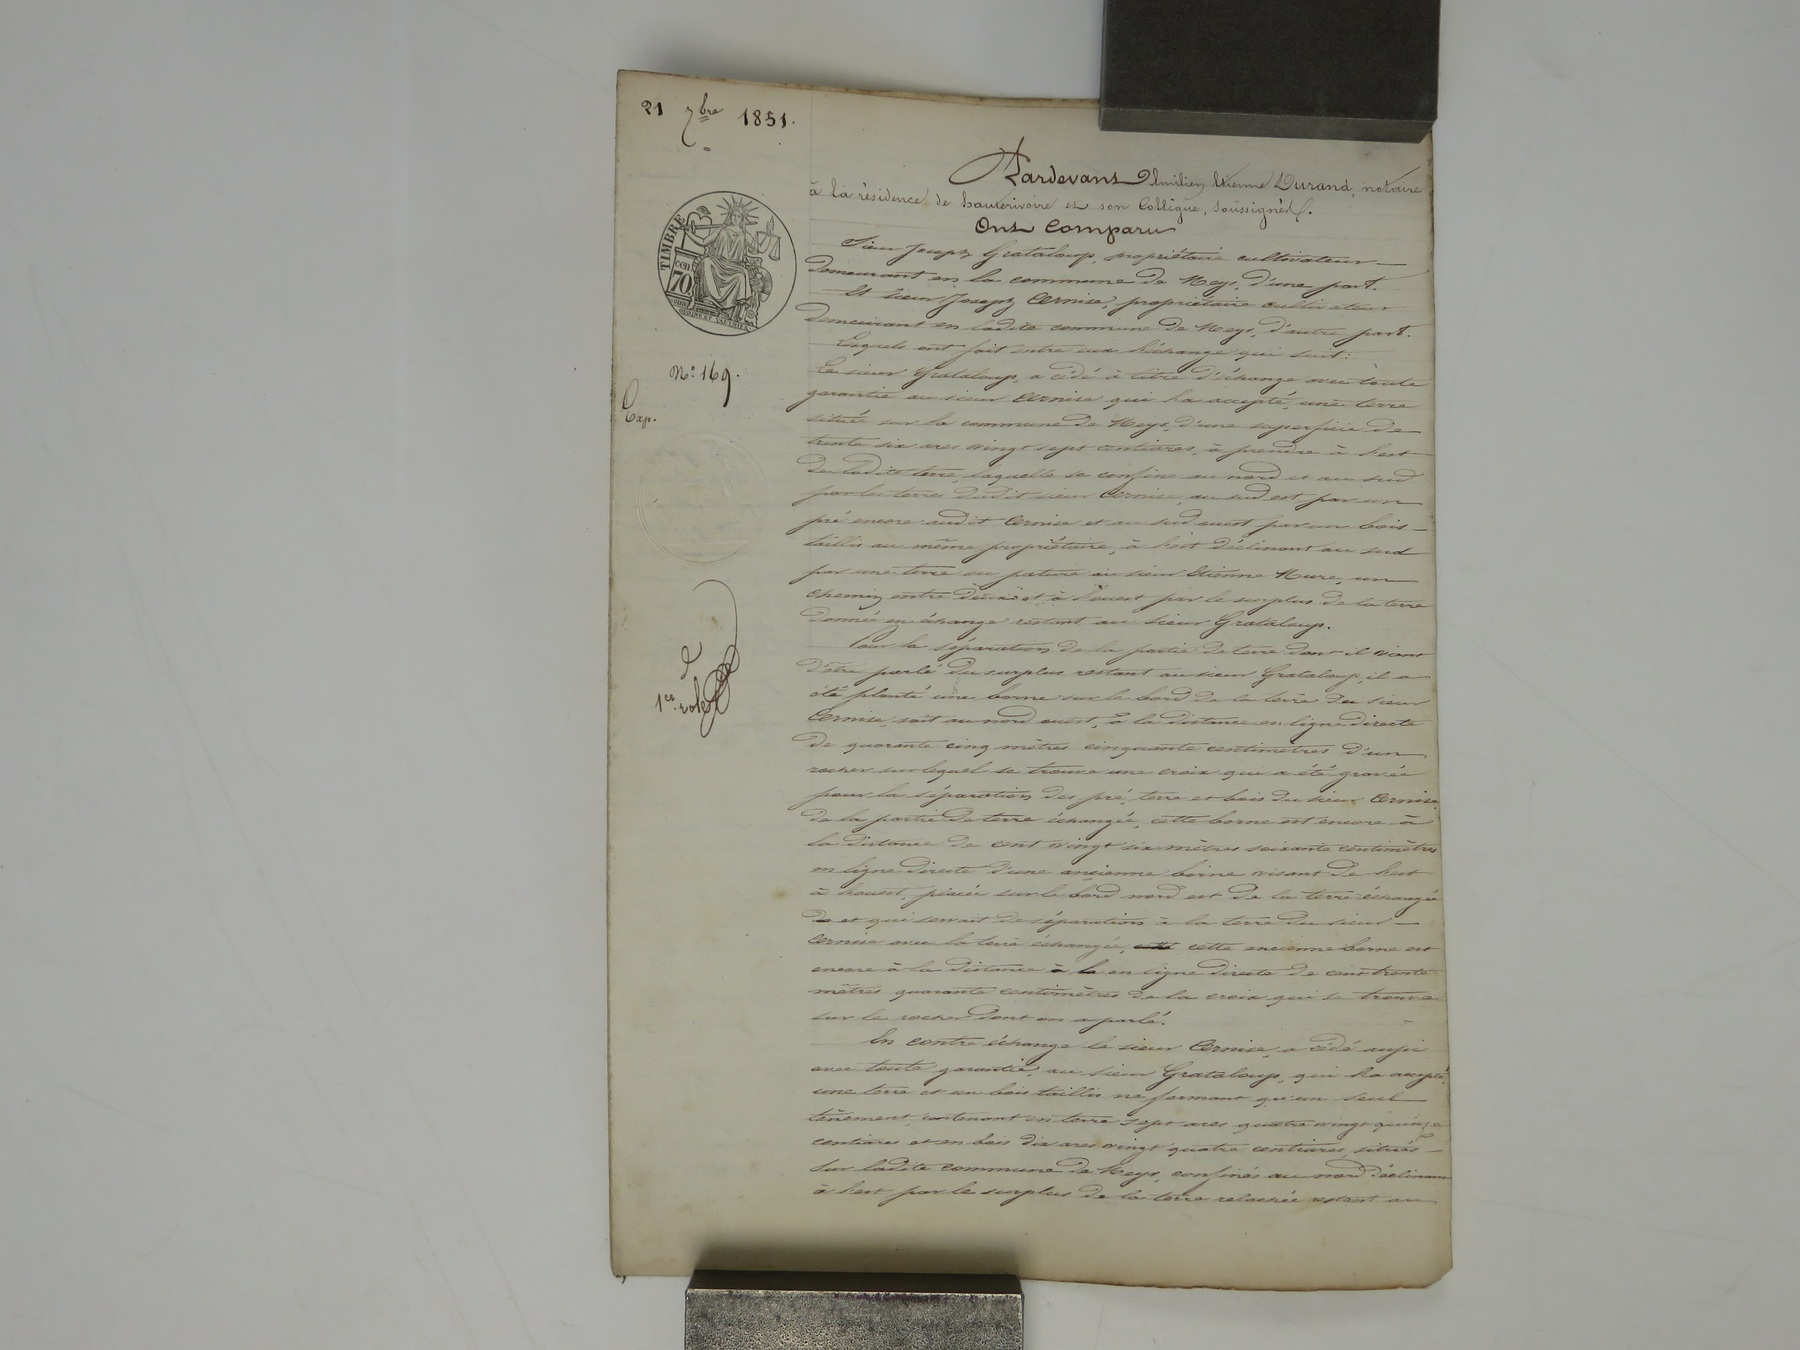 21 7bre 1851.
Pardevant Emilien Etienne Durand, notaire
à la résidence de hauterivoire et son Collègue, soussignés.
Ont Comparu
Sieur Joseph Grataloup, propriétaire cultivateur
demeurant en la commune de Meys, d'une part.
Et sieur Joseph Cernise, propriétaire cultivateur
demeurant en ladite commune de Meys, d'autre part.
Lesquels ont fait entre eux l'échange qui suit:
Le sieur Grataloup, a cédé à titre d'échange avec toute
garantie au sieur Cernise qui l'a accepté, une terre
située sur la commune de Meys, d'une superficie de
trente six ares vingt sept centiares, à prendre à l'est
de ladite terre, laquelle se confine au nord et au sud
par les terres dudit sieur Cernise au sud est par un
pré encore audit Cernise et au sud ouest par un bois
taillis au même propriétaire, à l'est déclinant au sud
par une terre ou pature au sieur Etienne Mure, un
chemin entre deux et à l'ouest par le surplus de la terre
donnée en échange restant au sieur Grataloup.
Pour la séparation de la partie de terre dont il vient
d'être parlé du surplus restant au sieur Grataloup, il a
été planté une borne sur le bord de la terre du sieur
Cernise, soit au nord ouest, à la distance en ligne directe
de quarante cinq mètres cinquante centimètres d'un
rocher sur lequel se trouve une croix qui a été gravée
pour la séparation des pré, terre et bois du sieur Cernise,
de la partie de terre échangée, cette borne est encore à
la distance de cent vingt six mètres soixante centimètres
en ligne directe d'une ancienne borne visant de l'est
à l'ouest, placée sur le bord nord est de la terre échangée
de et qui servait de séparation à la terre du sieur
Cernise avec la terre échangée, cette cette ancienne borne est
encore à la distance à la en ligne directe de cent trente
mètres quarante centimètres de la croix qui se trouve
sur le rocher dont on a parlé.
En contre échange le sieur Cernise, a cédé aussi
avec toute garantie, au sieur Grataloup, qui l'a accepté,
une terre et un bois taillis ne formant qu'un seul
tènement, contenant en terre sept ares quatre vingt quinze
centiares et en bois dix ares vingt quatre centiares, situés
sur ladite commune de Meys, confinés au nord déclinant
à l'est par le surplus de la terre relachée restant au
TIMBRE
cen
70
N° 169.
Exp.
1er role